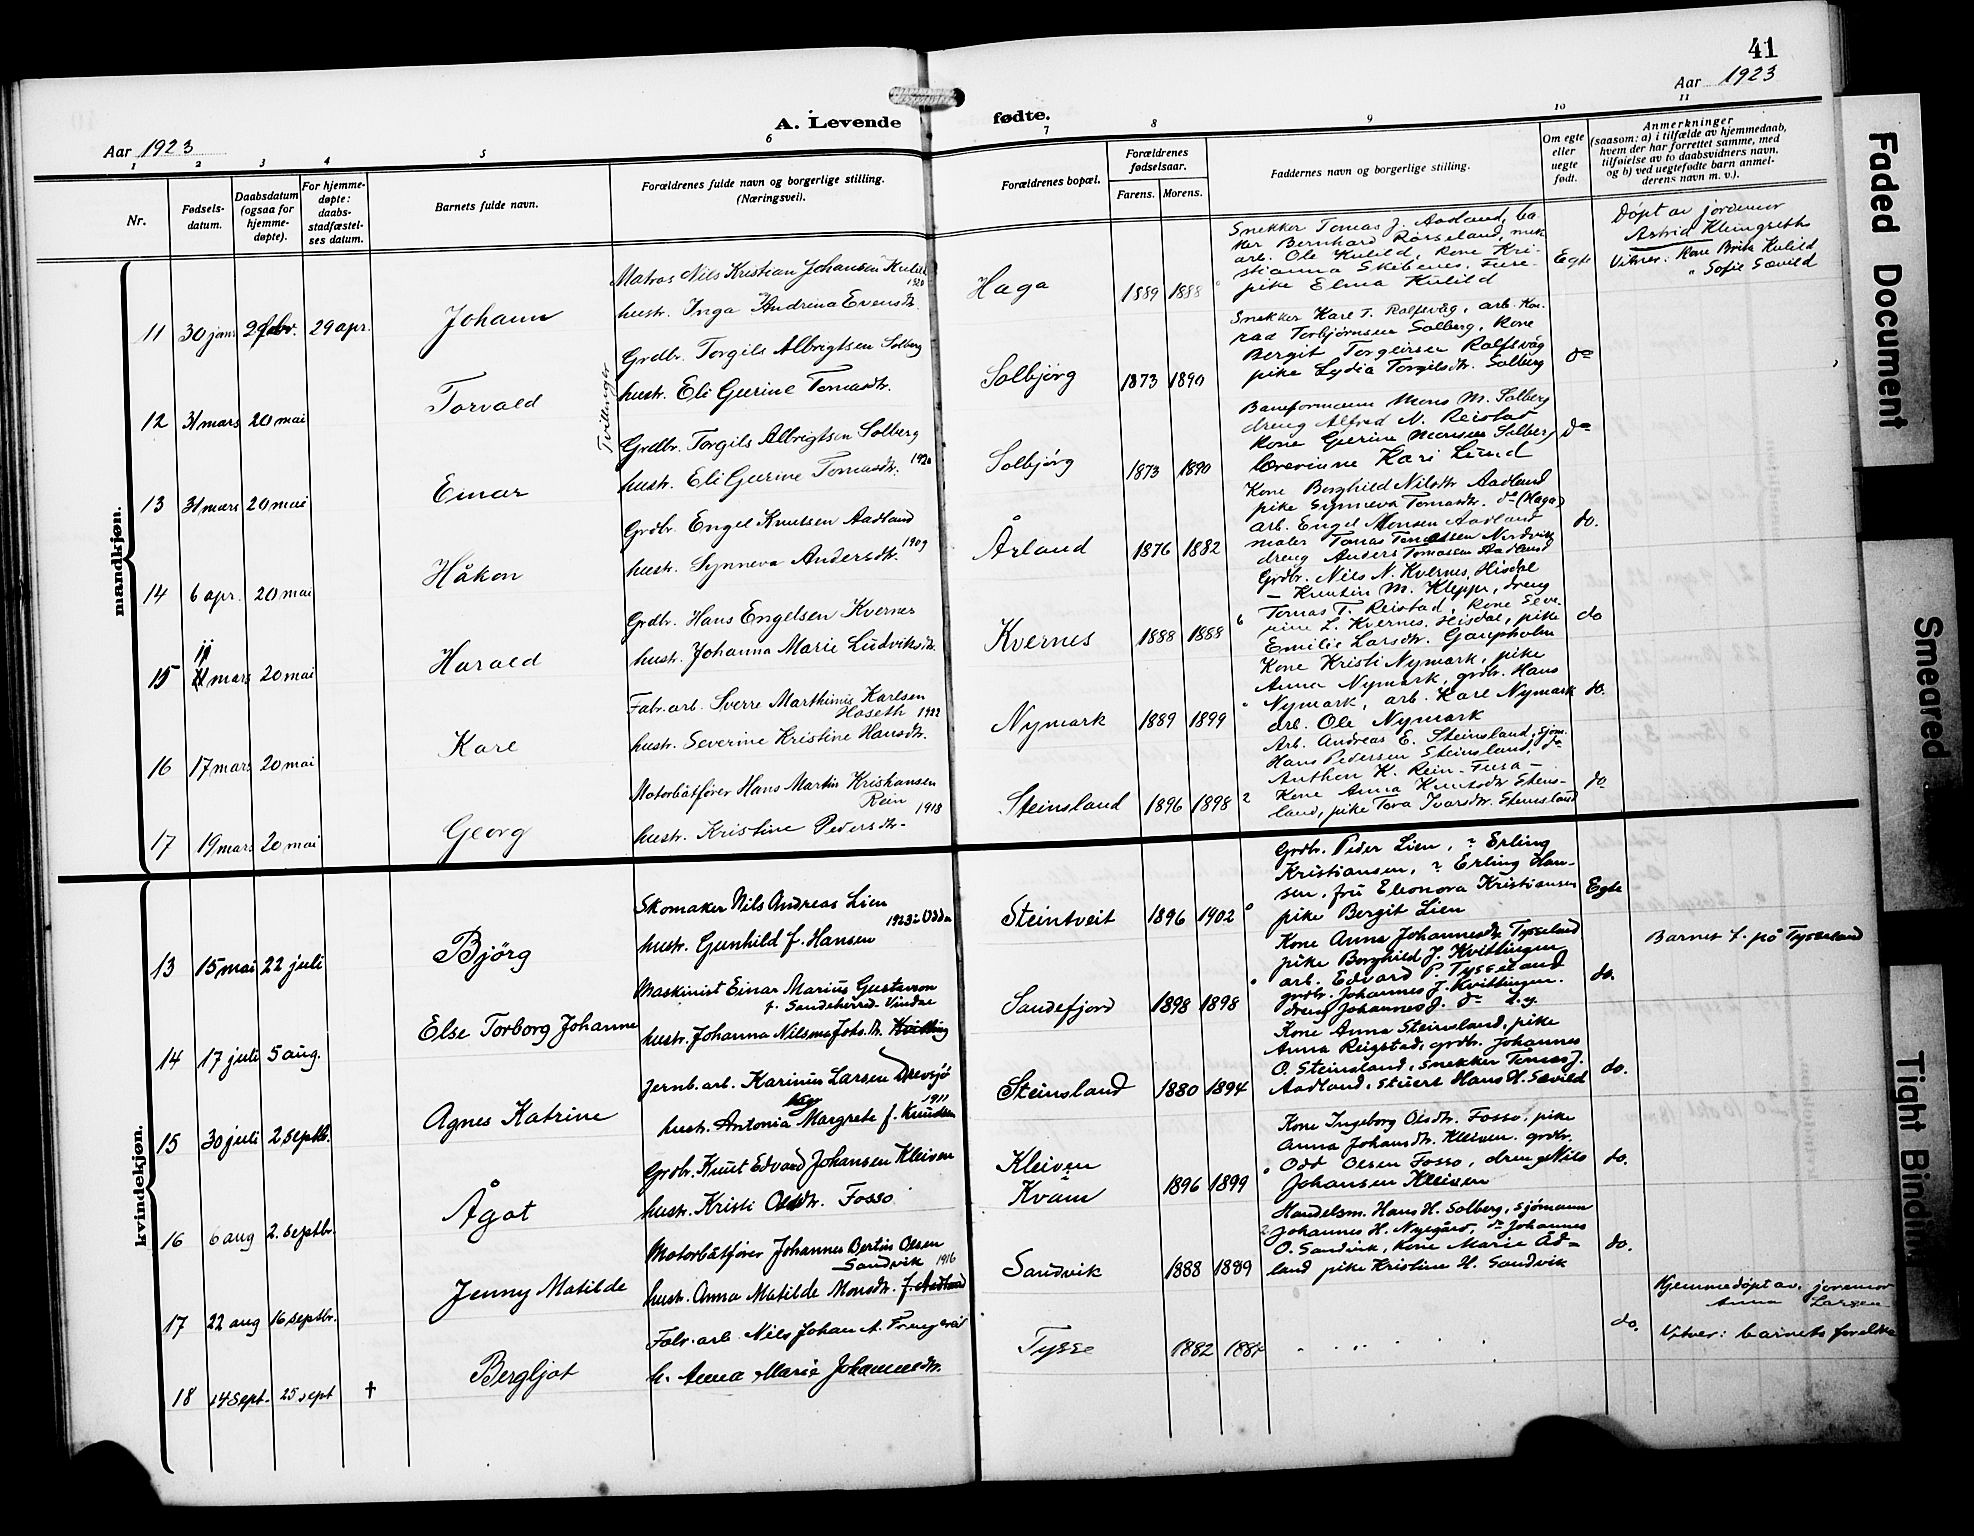 41
Aar 1923
Aar 1923
A. Levende fødte.
1 2 3 4 5 6 7 8 9 10 11
Nr.
Fødsels-
datum.
Daabsdatum
(ogsaa for
hjemme-
døpte).
For hjemme-
døpte:
daabs-
stadfæstel-
ses datum.
Barnets fulde navn.
Forældrenes fulde navn og borgerlige stilling.
(Næringsvei).
Forældrenes bopæl.
Forældrenes
fødselsaar.
Farens. Morens.
Faddernes navn og borgerlige stilling.
Om egte
eller
uegte
født.
Anmerkninger
(saasom: a) i tilfælde av hjemmedaab,
hvem der har forrettet samme, med
tilføielse av to daabsvidners navn,
og b) ved uegtefødte barn anmel-
derens navn m. v.).
mandkjøn.
11 30 jan 2 febr. 29 apr. Johann
Matros Nils Kristian Johansen Kulild
1920
hustr. Inga Andrina Evensdtr.
Haga 1889 1888
Snekker Tomas J. Aadland, ba-
ker Bernhard Rørseland, mek.
arb. Ole Kulild, Kone Kri-
stianna Skibenes, Fure.
pike Elma Kulild
Egte
Døpt av jordmor
Astrid Kleingreth
Vitner: Kone Brita Kulild
" Sofie Sævild
12 31 mars 20 mai Torvald
Tvillinger
Grdbr. Torgils Albrigtsen Solberg
hustr. Eli Gurine Tomasdtr.
Solbjørg 1873 1890
Snekker Karl T. Rolfsvåg, arb. Kon-
rad Torbjørnsen Solberg, Kone
Bergit Torgeirsen Rolfsvåg
pike Lydia Torgilsdtr. Solberg
do
13 31 mars 20 mai Einar
Grdbr. Torgils Albrigtsen Solberg
1920
hustr. Eli Gurine Tomasdtr.
Solbjørg 1873 1890
Baneformann Mons M. Solberg
dreng Alfred N. Reistad
Kone Gurine Monsen Solberg
lærerinne Kari Lund
do
14 6 apr. 20 mai Håkon
Grdbr. Engel Knutsen Aadland
1909
hustr. Synneva Andersdtr.
Årland 1876 1882
Kone Borghild Nilsdtr Aadland
pike Synneva Tomasdtr. do (Haga)
arb. Engel Monsen Aadland
maler Tomas Tomassen Nordvik
dreng Anders Tomasen Aadland
do.
15 11 mars 20 mai Harald
Grdbr. Hans Engelsen Kvernes
hustr. Johanna Marie Ludviksdtr.
Kvernes 1888 1888 6
Grdbr. Nils N. Kvernes, Hisdal
— Knut M. Kleppe, dreng
Tomas T. Reistad, Kone Seve-
rine L. Kvernes, Hisdal, pike
Emilie Larsdtr. Gaupholm
do
16 17 mars 20 mai Kare
Fabr. arb. Sverre Marthinius Karlsen
Hoseth 1922
hustr. Severine Kristine Hansdtr.
Nymark 1889 1899
Kone Kristi Nymark, pike
Anna Nymark, grdbr. Hans
Nymark, arb. Karl Nymark
arb. Ole Nymark
do.
17 19 mars 20 mai Georg
Motorbåtfører Hans Martin Kristiansen
Rein 1918
hustr. Kristine Pedersdtr.
Steinsland 1896 1898 2
Arb. Andreas E. Steinsland, sjøm.
Hans Pedersen Steinsland, do
Anthon K. Rein - Fusa -
Kone Anna Knutsdtr Steins-
land, pike Tora Ivarsdtr. Steinsland
do
kvindekjøn.
13 15 mai 22 juli Bjørg
Skomaker Nils Andreas Lien
1923 i Odda
hustr. Gunhild f. Hansen
Steintveit 1896 1902 0
Grdbr. Peder Lien, " Erling
Kristiansen, " Erling Han-
sen, fru Eleonora Kristiansen
pike Bergit Lien
Egte
Barnet f. på Tysseland
14 17 juli 5 aug. Else Torborg Johanne
Maskinist Einar Marius Gustavson
f. Sandeherred.
hustr. Johanna Nilsine Johs.dtr. Kvitting
Sandefjord 1898 1898
Kone Anna Johannesdtr Tysseland
pike Borghild J. Kvittingen
arb. Edvard P. Tysseland
grdbr. Johannes J. Kvittingen.
dreng Johannes J. do
do.
15 30 juli 2 septbr. Agnes Katrine
Jernb. arb. Karinius Larsen Drevsjø
1911
hustr. Antonia Margrete f. Knudsen
Steinsland 1880 1894
Kone Anna Steinsland, pike
Anna Reigstad, grdbr. Johannes
O. Steinsland, Snekker Tomas J.
Aadland, stuert Hans H. Sævild
do.
16 6 aug 2. septbr. Ågot
Grdbr. Knut Edvard Johansen Kleiven
hustr. Kristi Olsdtr. Fosso
Kleiven
Kvam 1896 1899
Kone Ingeborg Olsdtr. Fosso, pike
Anna Johansdtr. Kleiven, grdbr.
Odd Olsen Fosso, dreng Nils
Johansen Kleiven
do.
17 22 aug 16 septbr. Jenny Matilde
Motorbåtfører Johannes Bertin Olsen
Sandvik 1916
hustr. Anna Matilde Monsdtr. f. Aadland
Sandvik 1888 1889 2
Handelsm. Hans H. Solberg, Sjømann
Johannes H. Nygård, do Johannes
O. Sandvik, Kone Marie Åd-
land pike Kristine H. Sandvik
do.
18 14 sept. 25 sept † Bergljot
Fabr. arb. Nils Johan A.
h. Anna Marie Johannesdtr.
Tysse 1882 1884
do.
Hjemmedøpt av jordmor
Anna Larsen
Vitner: barnets foreldre
Faded Document
Smeared
Tight Binding